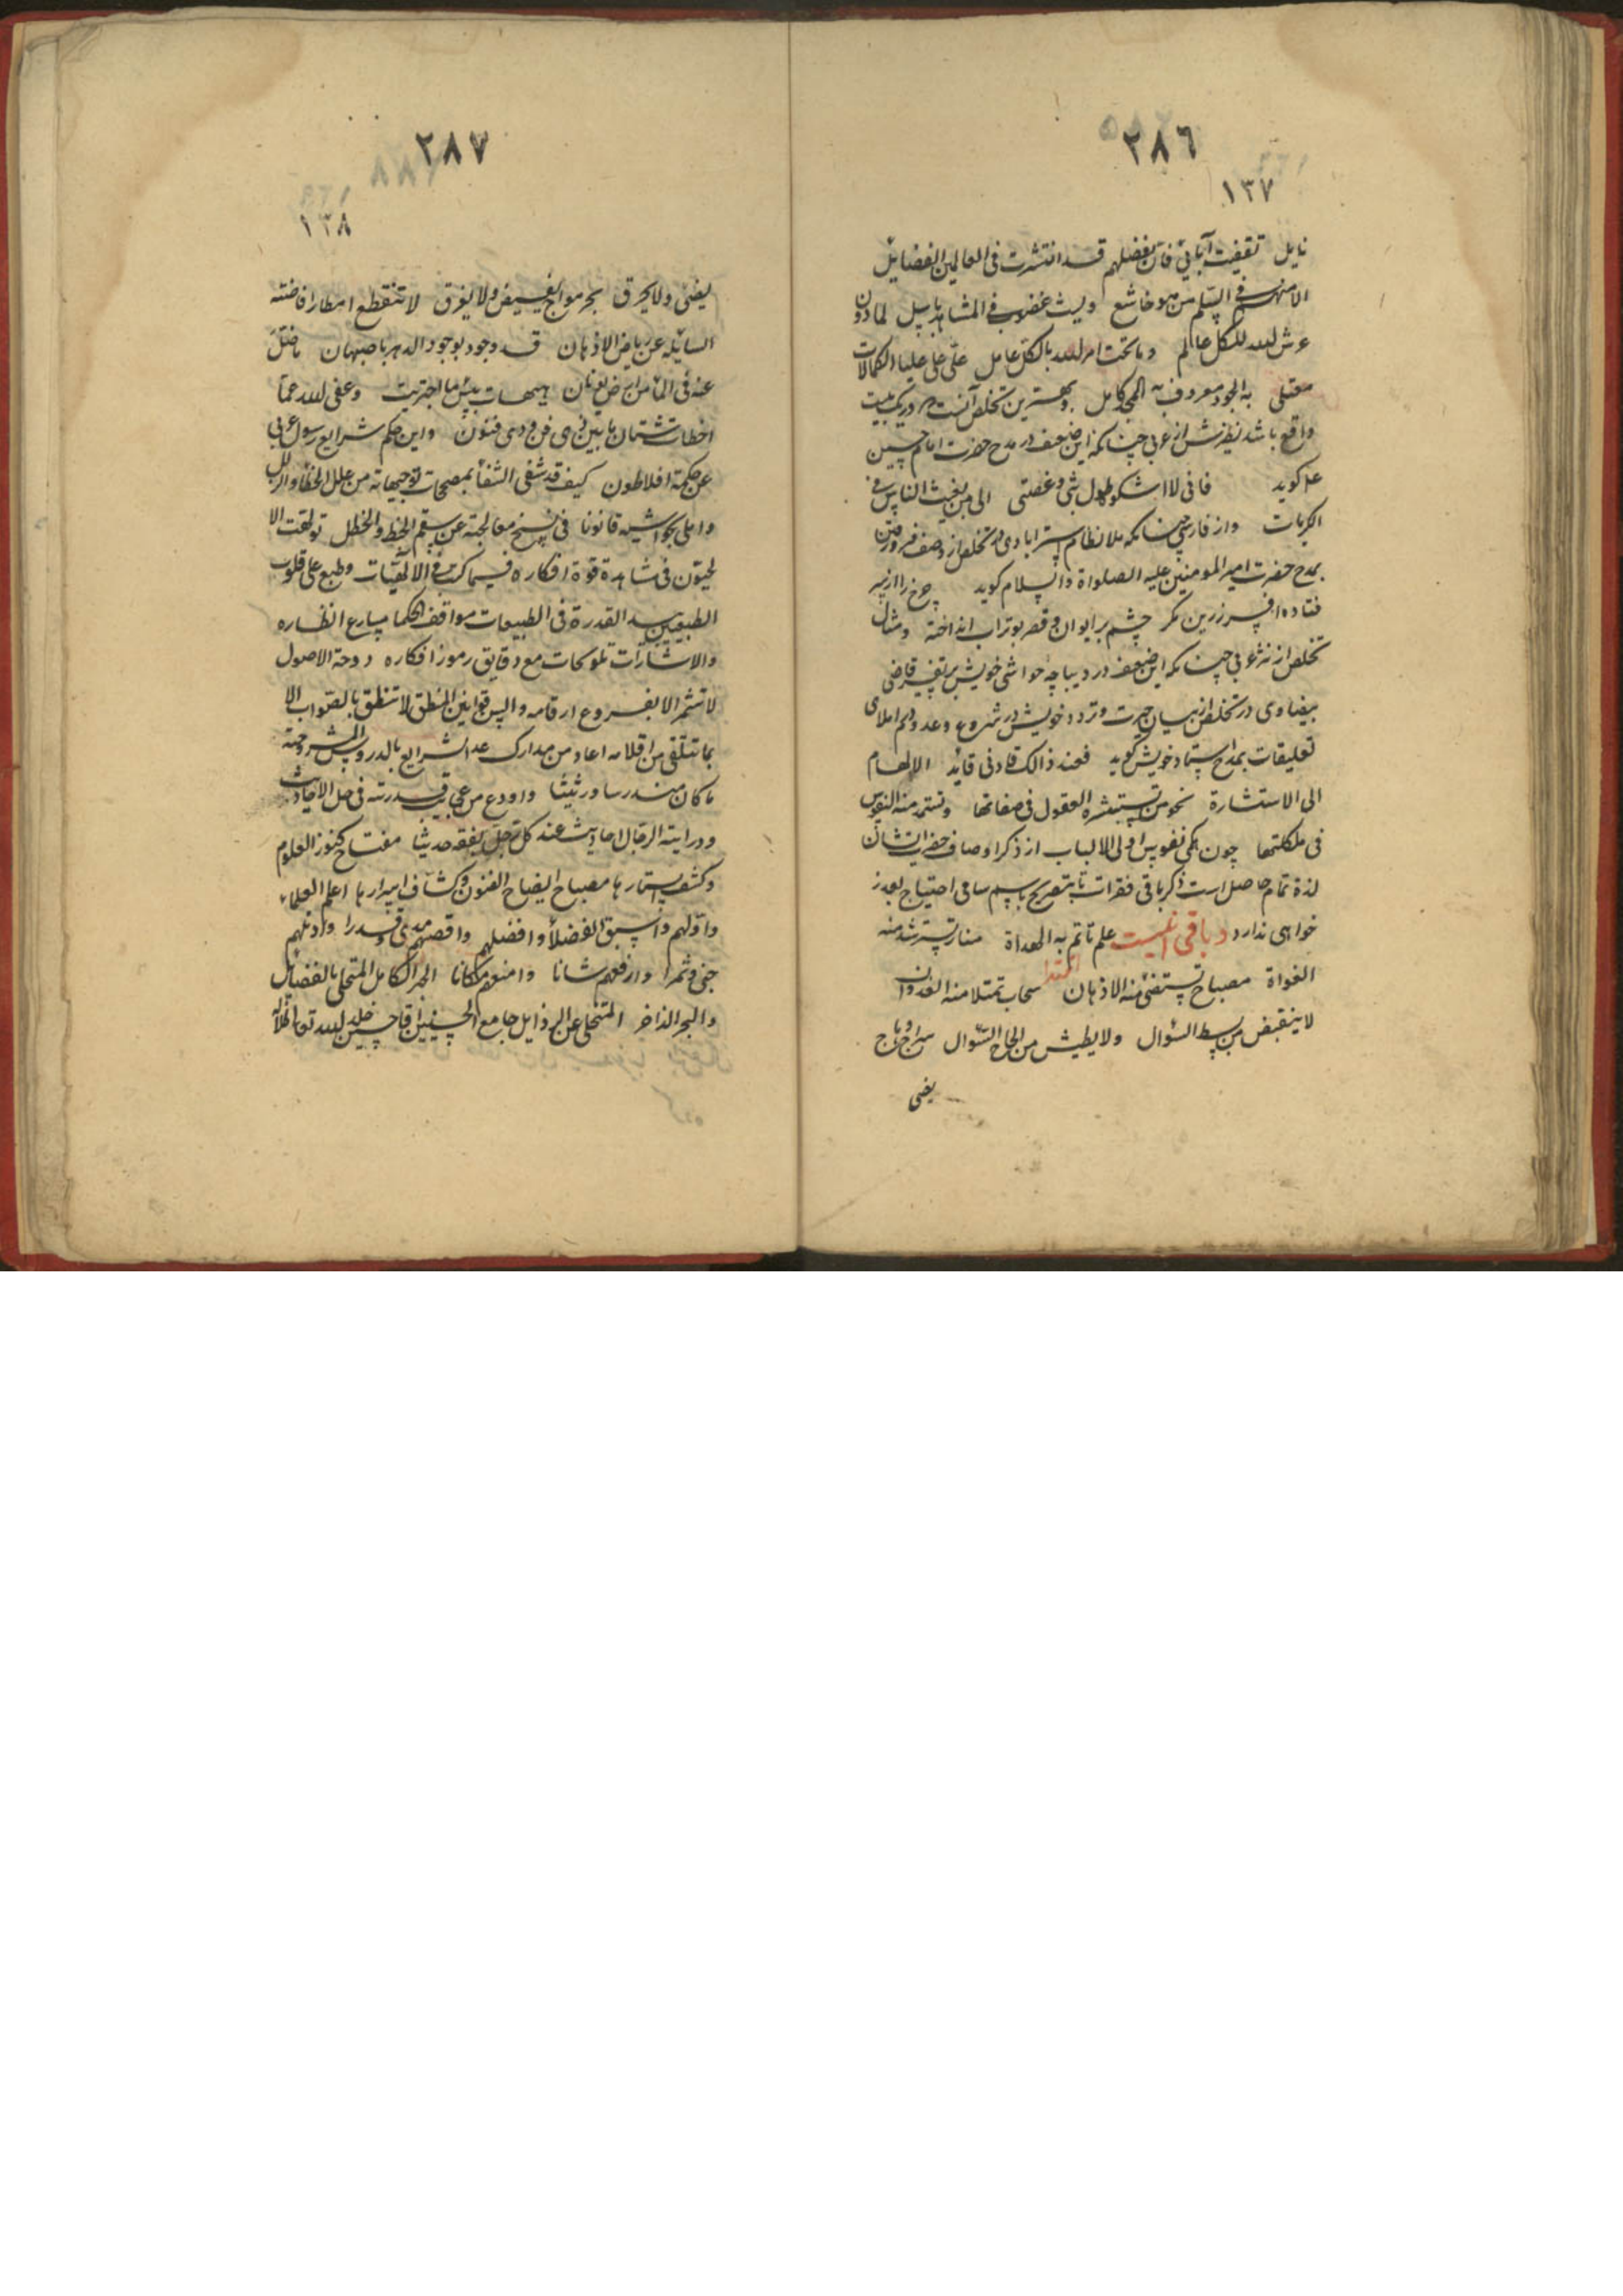 ٢٨٦
١٣٧
نايل تقفيت آبائي فان بفضلهم قد انتشرت فى العالمين الفضايل
الا منهم فى السلم من هو خاشع وليث غضوب فى المشاهد باسل لما دون
عرش الله للكل عالم وما تحت امر الله بالكل عامل على على عليا الكمالات
معتلى به الجود معروف به المجد كامل و بهترين تخلص آنست كه در يك بيت
واقع باشد نظيرش از عربى چنانكه اين ضعيف در مدح حضرت امام حسين
ع كويد فانى لا اشكو طول بثى وغصتى الى من يغيث الناس فى
الكربات واز فارسى چنانكه ملا نظام استرابادى در تخلص از وصف
بمدح حضرت امير المومنين عليه الصلواة والسلام كويد چرخ را از سر
فتاده افسر زرين مكر چشم بر ايوان و قصر بوتراب انداخته ومثال
تخلص از نثر عربى چنانكه اين ضعيف در ديباچه حواشى خويش بر تفسير قاضى
بيضاوى در تخلص از بيان حيرت و تردد خويش در شروع وعدم املاى
تعليقات بمدح استاد خويش كويد فعند ذالك قادنى قائد الالهام
الى الاستشارة نحو من تستبشره العقول فى صفاتها وتستمد منه النفوس
فى ملكاتها چون همكى نفوس اولى الالباب از ذكر اوصاف حضرت ايشان
لذة تمام حاصل است ذكر باقى فقرات تا بتصريح باسم سامى احتياج بعذر
خواهى ندارد و باقى اينست علم تاتم به الهداة منار تسترشد منه
الغواة مصباح تستضئ منه الاذهان سحاب تمتلا منه الغدران
لا ينقبض من بسط السئوال ولا يطيش من الحاح السئوال سراج وهاج
يضى
٢٨٧
١٣٨
يضئ ولا يحرق بحر مواج يفيض ولا يغرق لا تنقطع امطار افاضته
السائله عن رياض الاذهان قد وجد بوجود الدهر باصبهان ما ضل
عنه فى الما من ارض يونان هيهات بئس ما اجتريت وعفى الله عما
اخطات شتان ما بين ذى فن و ذى فنون واين حكم شرايع رسول عربى
عن حكمة افلاطون كيف قد شفى الشفا بمصححات توجيهاته من علل الخطا والزلل
واملى بحواشيه قانونا فى نسخ معالجته عن سقم الخبط والخطل تولهت الا
لهيون فى مشاهدة قوة افكاره فيما كرت فى الالهيات وطبع على قلوب
الطبيعيين يد القدرة فى الطبيعات مواقف الحكما مسارع انظاره
والاشارات تلوحات مع دقايق رموز افكاره دوحة الاصول
لا تثمر الا بفروع ارقامه والسن قوانين المنطق لا تنطق بالصواب الا
بما تتلقى من اقلامه اعاد من مدارك عد الشرايع بالدروس المشروحة
ما كان مندرسا ورثيثا واودع من عجايب قدرته فى حل الاحاديث
ودراية الرجال احاديث عند كل رجل يفقه حديثا مفتاح كنوز العلوم
وكشف استارها مصباح ايضاح الفنون وكشاف اسرارها اعلم العلماء
واولهم واسبق الفضلاء وافضلهم واقصهم مدى و قدرا وادناهم
جنى وثمرا وارفعهم شانا وامنعهم مكانا الحبر الكامل المتحلى بالفضائل
والبحر الذاخر المتخلى عن الرذايل جامع الحسنيين اقا حسين خلد الله تعالى ظلاله